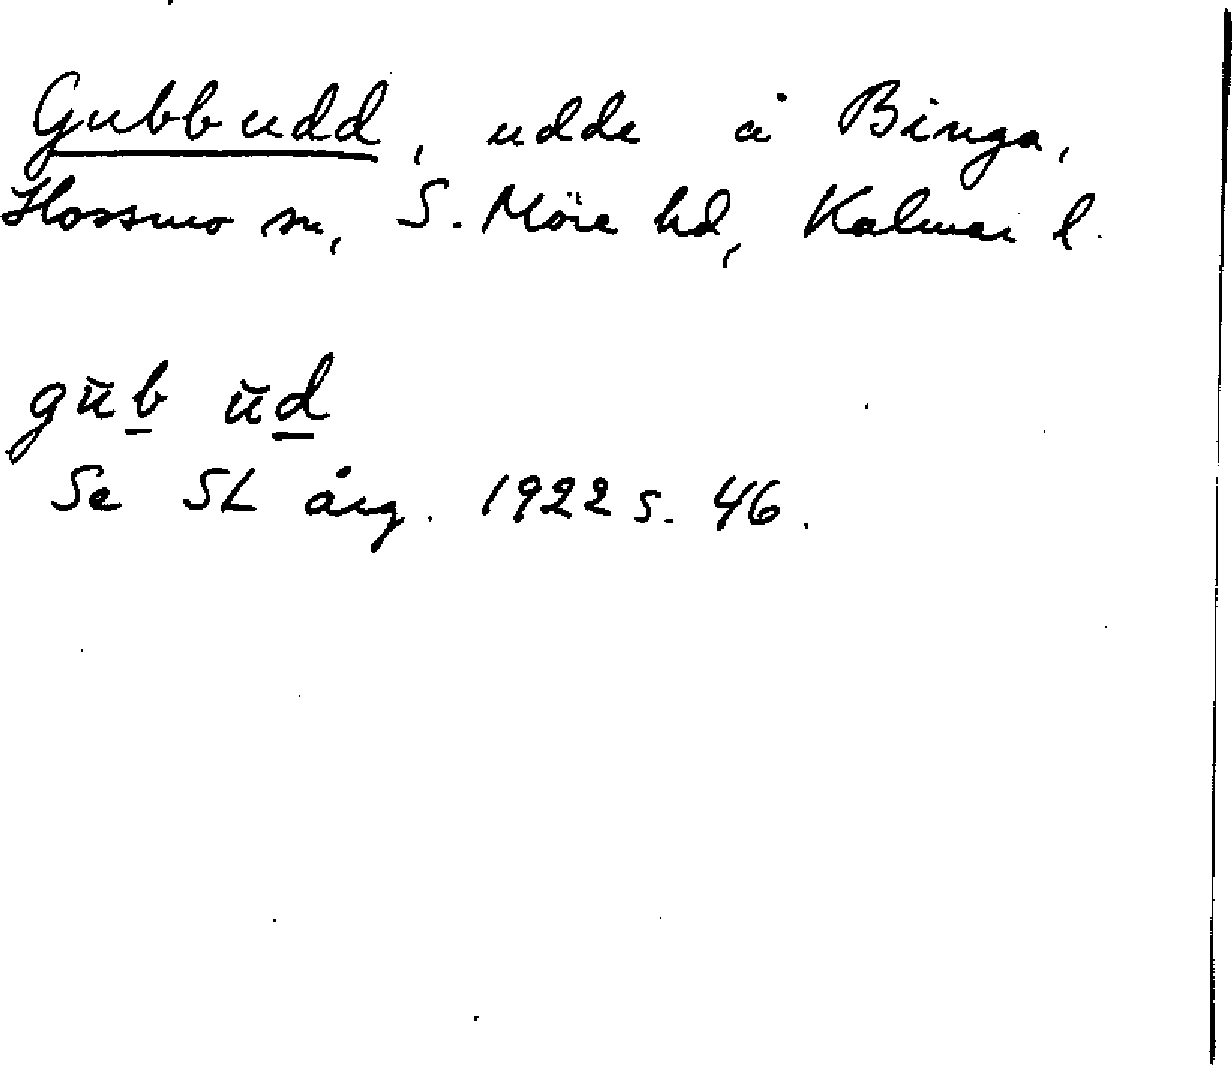 Gubbudd, udde å Binga,
Hossmo sn, S. Möre hd, Kalmar l.
gŭb ŭd
Se SL årg. 1922 s. 46.